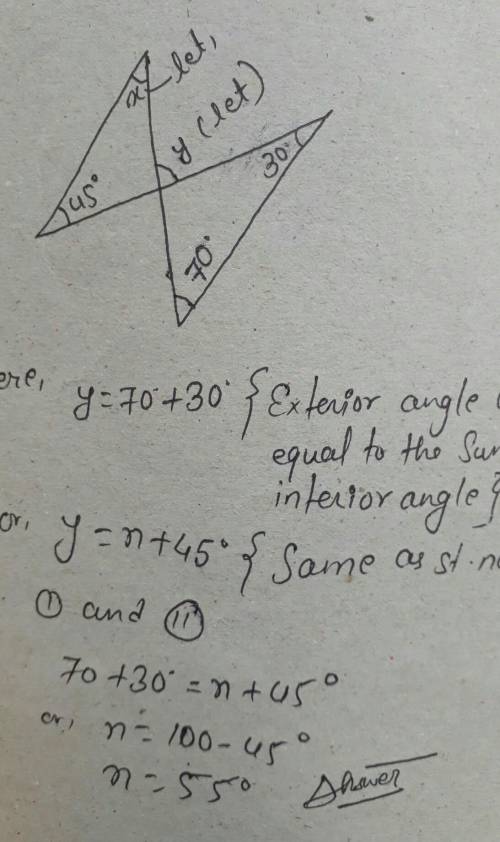 x let,
y (let)
45°
30°
70°
ere, y=70°+30° { Exterior angle
equal to the Sum
interior angle }
or, y = n+45° { Same as st. no
① and ⑪
70+30° = n+45°
or, n = 100-45°
n = 55° Answer